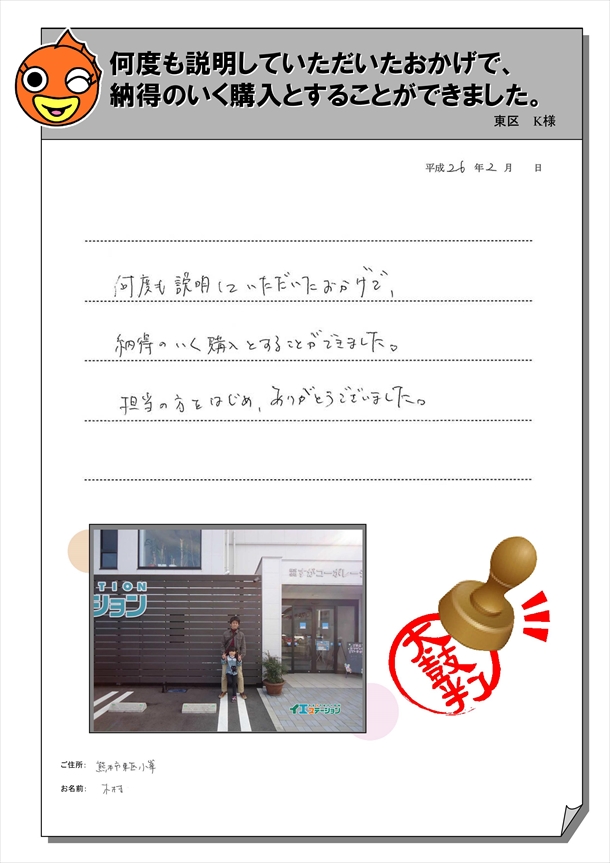 何度も説明していただいたおかげで、
納得のいく購入とすることができました。
東区 K様
平成26年2月 日
何度も説明していただいたおかげで、
納得のいく購入とすることができました。
担当の方をはじめ、ありがとうございました。
TION
ション
イエステーション
太鼓判
ご住所: 熊本市東区小峯
お名前: 木村